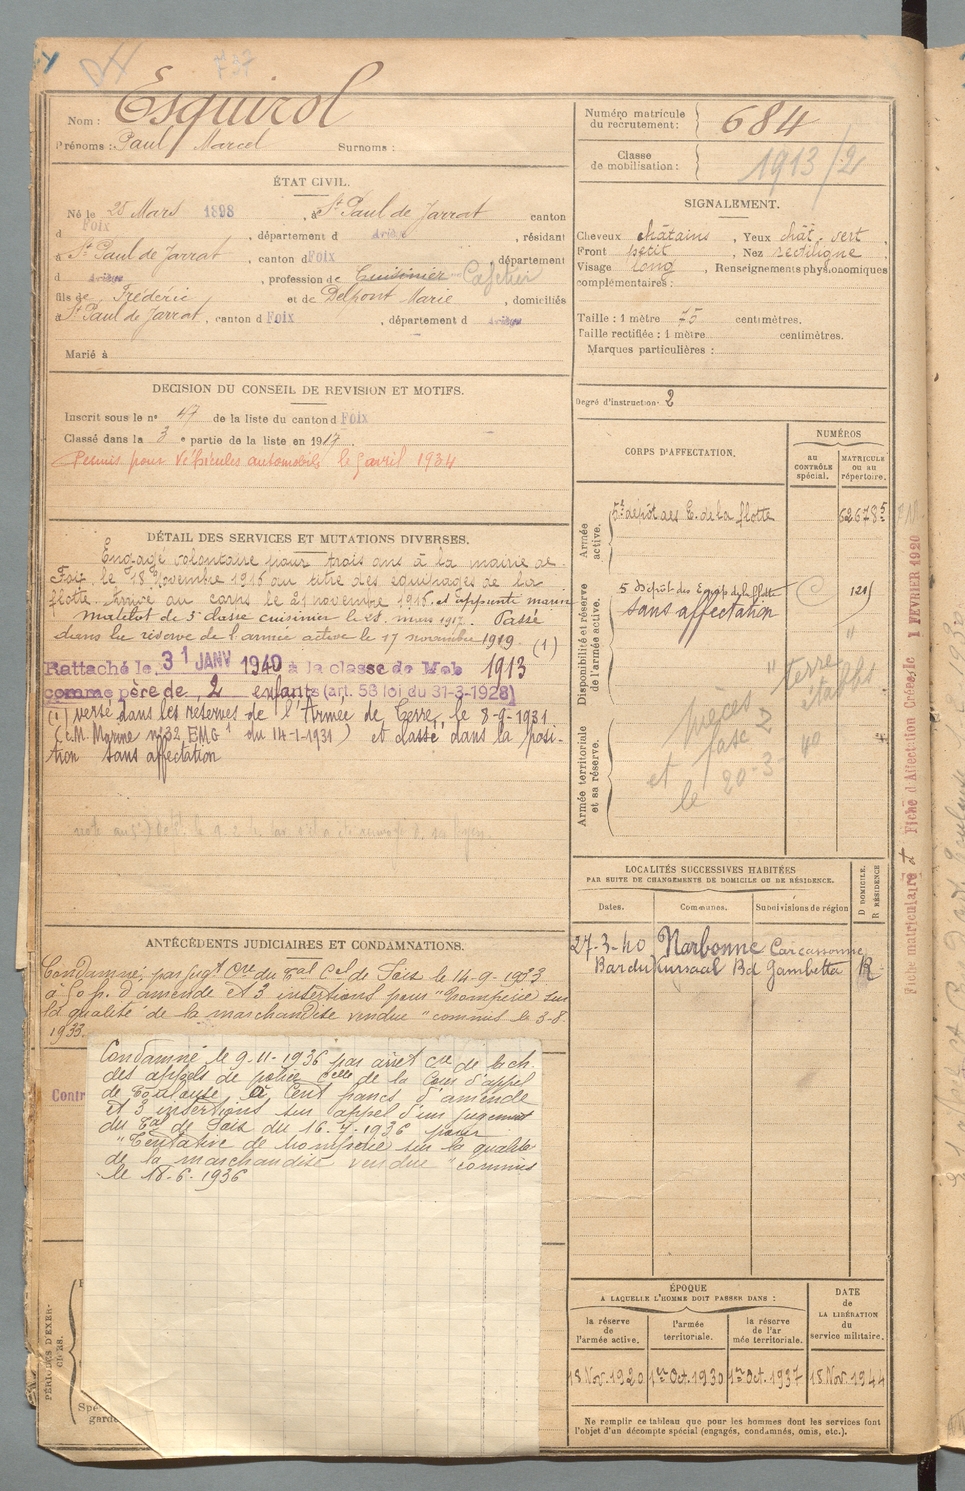 Nom : Esquirol
Prénoms : Paul Marcel Surnoms :
ÉTAT CIVIL.
Né le 25 Mars 1898, à St Paul de Jarrat canton
d Foix, département d Ariège, résidant
à St Paul de Jarrat, canton d Foix, département
d Ariège, profession de Cuisinier Cafetier
fils de Frédéric et de Delpont Marie, domiciliés
à St Paul de Jarrat, canton d Foix, département d Ariège
Marié à
DECISION DU CONSEIL DE REVISION ET MOTIFS.
Inscrit sous le n° 47 de la liste du canton d Foix
Classé dans la 3 e partie de la liste en 1917.
Permis pour véhicules automobile le 5 avril 1934
DÉTAIL DES SERVICES ET MUTATIONS DIVERSES.
Engagé volontaire pour trois ans à la mairie de
Foix, le 18 Novembre 1916 au titre des équipages de la
flotte. Arrivé au corps le 21 novembre 1916, et apprenti marin
matelot de 3e classe cuisinier le 25 mars 1917. Passé
dans la réserve de l'armée active le 17 novembre 1919. (1)
Rattaché le 31 JANV 1940 à la classe de Mob 1913
comme père de 2 enfants (art. 58 loi du 31-3-1928)
(1) versé dans les réserves de l'Armée de terre, le 8-9-1931
(C.M. Marine n° 32 EMG 1 du 14-1-1931) et classé dans la posi-
tion sans affectation
ANTÉCÉDENTS JUDICIAIRES ET CONDAMNATIONS.
Condamné, par jugt Cre du Tal Cel de Foix le 14-9-1933
à 50 f. d'amende et 3 insertions pour "Tromperie sur
la qualité de la marchandise vendue" commis le 3-8
1933.
Contr
Condamné le 9-11-1936 par arrêt Cre de la ch.
des appels de police Celle de la Cour d'appel
de Toulouse à Cent francs d'amende
et 3 insertions sur appel d'un jugement
du Tal de Foix du 16-7-1936 pour
"Tentative de tromperie sur la qualité
de la marchandise vendue" commis
le 18-6-1936
PÉRIODES D'EXER-
CICES.
Spé
garde
Numéro matricule
du recrutement : 684
Classe
de mobilisation : 1913/2
SIGNALEMENT.
Cheveux châtains, Yeux chât. vert,
Front petit, Nez rectiligne,
Visage long, Renseignements physionomiques
complémentaires :
Taille : 1 mètre 75 centimètres.
Taille rectifiée : 1 mètre centimètres.
Marques particulières :
Degré d'instruction : 2
CORPS D'AFFECTATION.
NUMÉROS
au
CONTRÔLE
spécial.
MATRICULE
ou au
répertoire.
Armée
active.
5e dépôt des E. de la flotte 62678-5
Disponibilité et réserve
de l'armée active.
5 Dépôt des Equip de la flotte 121
sans affectation
Armée territoriale
et sa réserve.
pièces "terre"
et fasc Z établis
le 20-3-40
LOCALITÉS SUCCESSIVES HABITÉES
PAR SUITE DE CHANGEMENTS DE DOMICILE OU DE RÉSIDENCE.
Dates. Communes. Subdivisions de région
D DOMICILE.
R RÉSIDENCE
27-3-40 Narbonne Carcassonne
Bar du Kursaal Bd Gambetta R
ÉPOQUE
A LAQUELLE L'HOMME DOIT PASSER DANS :
la réserve
de
l'armée active.
l'armée
territoriale.
la réserve
de l'ar
mée territoriale.
DATE
de
LA LIBÉRATION
du
service militaire.
18 Nov. 1920 1er Oct. 1930 1er Oct. 1937 18 Nov. 1944
Ne remplir ce tableau que pour les hommes dont les services font
l'objet d'un décompte spécial (engagés, condamnés, omis, etc.).
Fiche matriculaire et Fiche d'Affectation Créées le 1 FEVRIER 1920